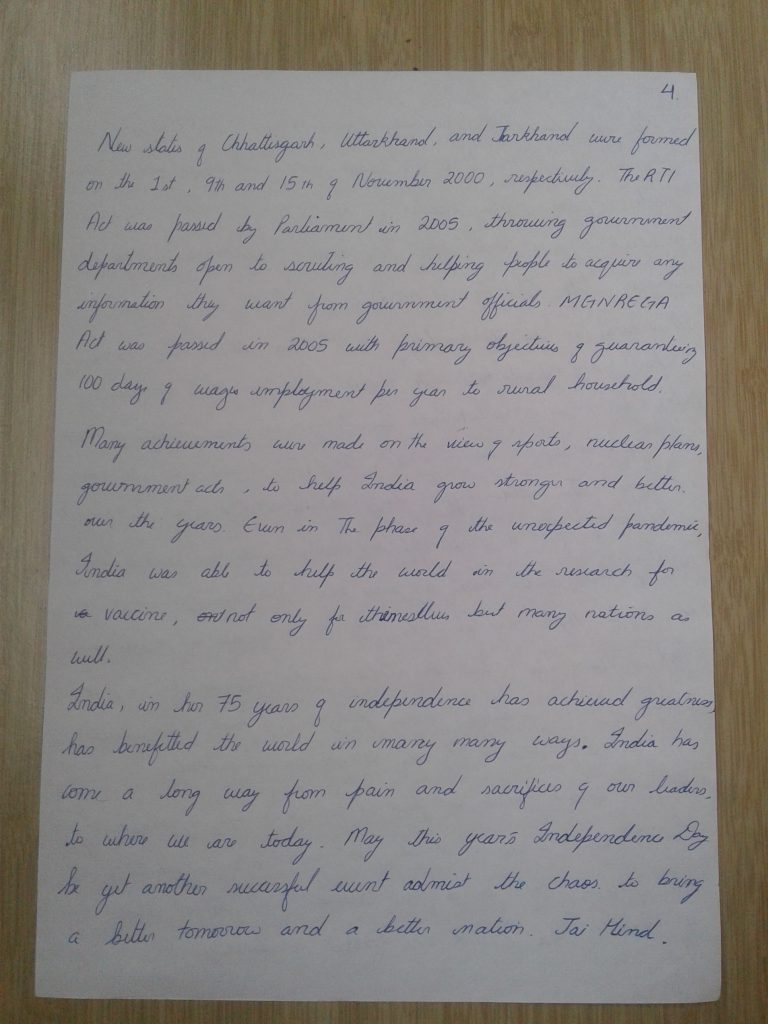 4.
New states of Chhattisgarh, Uttarkhand, and Jarkhand were formed
on the 1st, 9th and 15th of November 2000, respectively. The RTI
Act was passed by Parliament in 2005, throwing government
departments open to scruting and helping people to acquire any
information they want from government officials. MGNREGA
Act was passed in 2005 with primary objectives of guaranteeing
100 days of wages employment per year to rural household.
Many achievements were made on the view of sports, nuclear plans,
government acts, to help India grow stronger and better.
over the years. Even in The phase of the unexpected pandemic,
India was able to help the world in the research for
vaccine, not only for themselves but many nations as
well.
India, in her 75 years of independence has achieved greatness,
has benefitted the world in many many ways. India has
come a long way from pain and sacrifices of our leaders,
to where we are today. May this year's Independence Day
be yet another successful event admist the chaos. to bring
a better tomorrow and a better nation. Jai Hind.